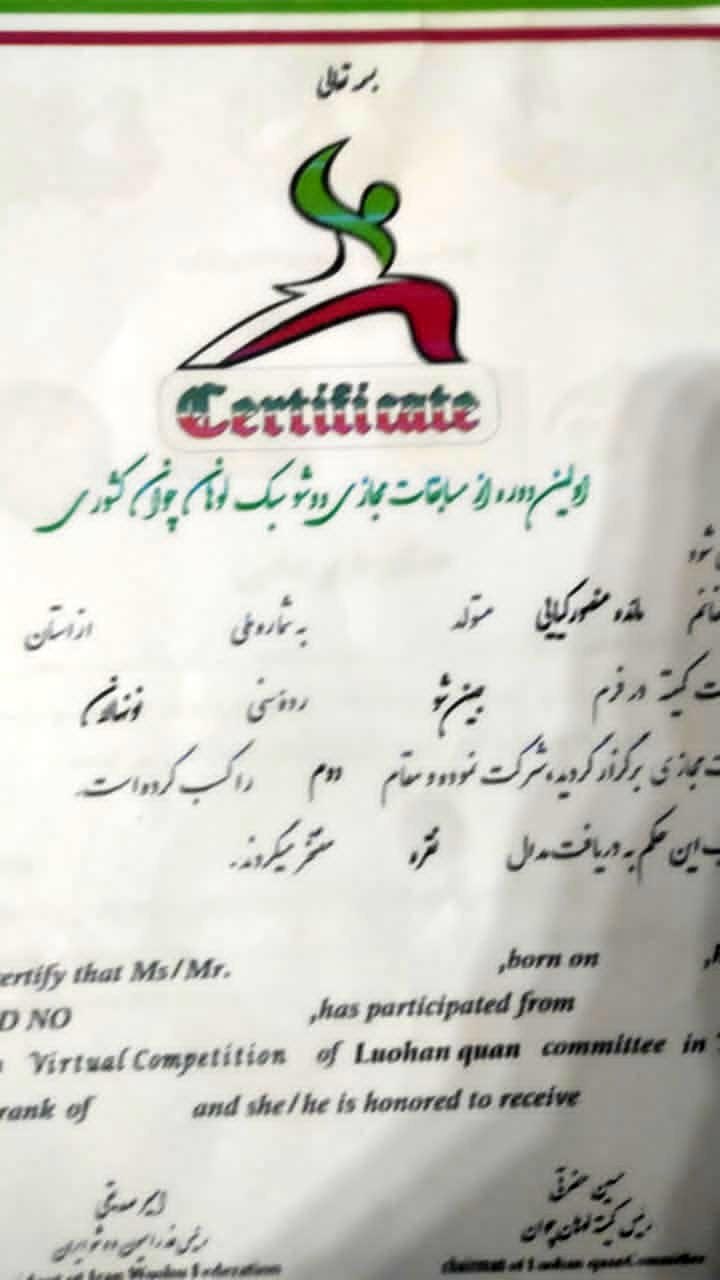 بسمه تعالی
Certificate
اولین دوره از مسابقات مجازی ووشو سبک لوهان چوان کشوری
شود
مائده منصورکیایی متولد به شماره ملی از استان
کمیته در فرم بین شو رده سنی نونهالان
مجازی برگزار گردید، شرکت نموده و مقام دوم را کسب کرده است.
این حکم به دریافت مدال نقره مفتخر میگردند.
certify that Ms/Mr. ,born on
D NO ,has participated from
Virtual Competition of Luohan quan committee in
rank of and she/he is honored to receive
امیر صدیقی
رئیس فدراسیون ووشو ایران
رئیس کمیته لوهان چوان
of Iran Wushu Federation
chairman of Luohan quan Committee